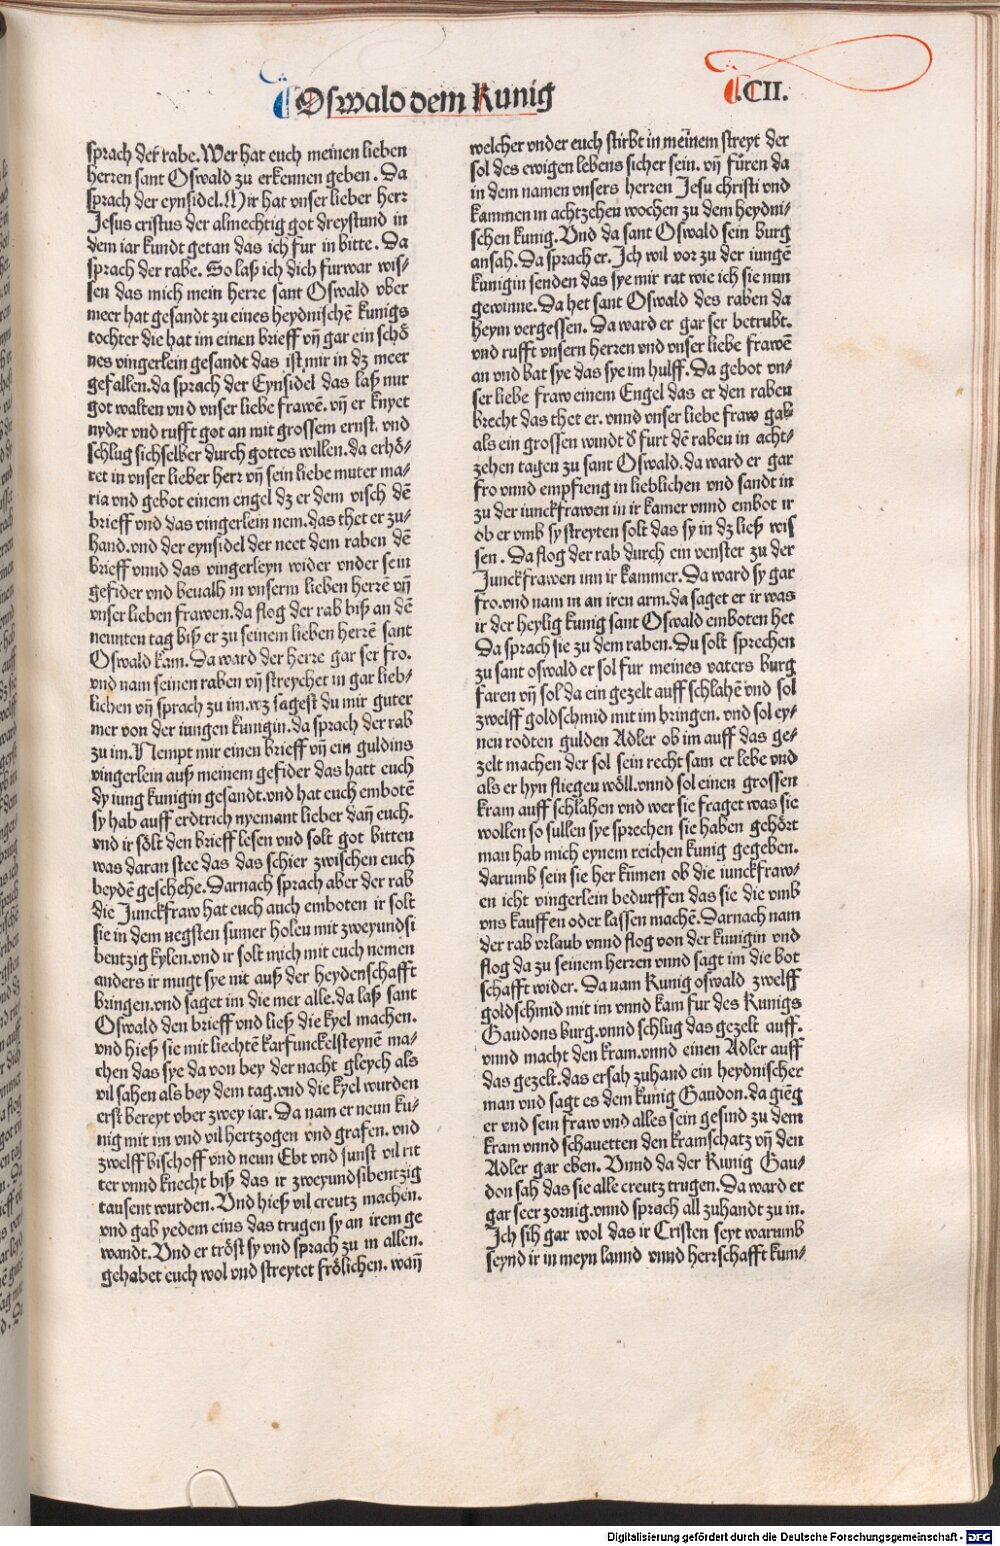 Oswald dem Kunig
.CII.
sprach der rabe. Wer hat euch meinen lieben
herren sant Oswald zu erkennen geben. Da
sprach der eynsidel. Mir hat vnser lieber herr
Jesus cristus der almechtig got dreystund in
dem iar kundt getan das ich fur in bitte. Da
sprach der rabe. So laß ich dich furwar wis/
sen das mich mein herre sant Oswald vber
meer hat gesandt zu eines heydnischē kunigs
tochter die hat im einen brieff vn̄ gar ein schö
nes vingerlein gesandt das ist mir in dz meer
gefallen. da sprach der Eynsidel das laß nur
got walten vnd vnser liebe frawē. vn̄ er knyet
nyder vnd rufft got an mit grossem ernst. vnd
schlug sichselber durch gottes willen. da erhö/
ret in vnser lieber herr vn̄ sein liebe muter ma/
ria vnd gebot einem engel dz er dem visch dē
brieff vnd das vingerlein nem. das thet er zu/
hand. vnd der eynsidel der neet dem raben dē
brieff vnnd das vingerleyn wider vnder sein
gefider vnd beualh in vnserm lieben herrē vn̄
vnser lieben frawen. da flog der rab biß an dē
neunten tag biß er zu seinem lieben herrē sant
Oswald kam. Da ward der herre gar ser fro.
vnd nam seinen raben vn̄ streychet in gar lieb/
lichen vn̄ sprach zu im. wz sagest du mir guter
mer von der iungen kunigin. da sprach der rab
zu im. Nempt mir einen brieff vn̄ ein guldins
vingerlein auß meinem gefider das hatt euch
dy iung kunigin gesandt. vnd hat euch embotē
sy hab auff erdtrich nyemant lieber dan̄ euch.
vnd ir sölt den brieff lesen vnd solt got bitten
was daran stee das das schier zwischen euch
beydē geschehe. Darnach sprach aber der rab
die Junckfraw hat euch auch emboten ir solt
sie in dem negsten sumer holen mit zweyundsi
bentzig kylen. vnd ir solt mich mit euch nemen
anders ir mugt sye nit auß der heydenschafft
bringen. vnd saget im die mer alle. da laß sant
Oswald den brieff vnd ließ die kyel machen.
vnd hieß sie mit liechtē karfunckelsteynē ma/
chen das sye da von bey der nacht gleych als
vil sahen als bey dem tag. vnd die kyel wurden
erst bereyt vber zwey iar. Da nam er neun ku/
nig mit im vnd vil hertzogen vnd grafen. vnd
zwelff bischoff vnd neun Ebt vnd sunst vil rit
ter vnnd knecht biß das ir zweyundsibentzig
tausent wurden. Vnd hieß vil creutz machen.
vnd gab yedem eins das trugen sy an irem ge
wandt. Vnd er tröst sy vnd sprach zu in allen.
gehabet euch wol vnd streytet frölichen. wan̄
welcher vnder euch stirbt in meinem streyt der
sol des ewigen lebens sicher sein. vn̄ füren da
in dem namen vnsers herren Jesu christi vnd
kammen in achtzehen wochen zu dem heydni/
schen kunig. Vnd da sant Oswald sein burg
ansah. Da sprach er. Ich wil vor zu der iungē
kunigin senden das sye mir rat wie ich sie nun
gewinne. Da het sant Oswald des raben da
heym vergessen. Da ward er gar ser betrubt.
vnd rufft vnsern herren vnd vnser liebe frawē
an vnd bat sye das sye im hulff. Da gebot vn/
ser liebe fraw einem Engel das er den raben
brecht das thet er. vnnd vnser liebe fraw gab
als ein grossen windt d' furt dē raben in acht/
zehen tagen zu sant Oswald. da ward er gar
fro vnnd empfieng in lieblichen vnd sandt in
zu der iunckfrawen in ir kamer vnnd embot ir
ob er vmb sy streyten solt das sy in dz ließ wis
sen. Da flog der rab durch ein venster zu der
Junckfrawen inn ir kammer. Da ward sy gar
fro. vnd nam in an iren arm. da saget er ir was
ir der heylig kunig sant Oswald emboten het
Da sprach sie zu dem raben. Du solt sprechen
zu sant oswald er sol fur meines vaters burg
faren vn̄ sol da ein gezelt auff schlahē vnd sol
zwelff goldschmid mit im bringen. vnd sol ey/
nen rodten gulden Adler ob im auff das ge/
zelt machen der sol sein recht sam er lebe vnd
als er hyn fliegen wöll. vnnd sol einen grossen
kram auff schlahen vnd wer sie fraget was sie
wollen so sullen sye sprechen sie haben gehört
man hab mich eynem reichen kunig gegeben.
darumb sein sie her kūmen ob die iunckfraw/
en icht vingerlein bedurffen das sie die vmb
vns kauffen oder lassen machē. Darnach nam
der rab vrlaub vnnd flog von der kunigin vnd
flog da zu seinem herren vnnd sagt im die bot
schafft wider. Da nam Kunig oswald zwelff
goldschmid mit im vnnd kam fur des Kunigs
Gaudons burg. vnnd schlug das gezelt auff.
vnnd macht den kram. vnnd einen Adler auff
das gezelt. das ersah zuhand ein heydnischer
man vnd sagt es dem kunig Gaudon. da giēg
er vnd sein fraw vnd alles sein gesind zu dem
kram vnnd schauetten den kramschatz vn̄ den
Adler gar eben. Vnnd da der Kunig Gau/
don sah das sie alle creutz trugen. Da ward er
gar seer zornig. vnnd sprach all zuhandt zu in.
Ich sih gar wol das ir Cristen seyt warumb
seynd ir in meyn lannd vnnd herrschafft kum/
Digitalisierung gefördert durch die Deutsche Forschungsgemeinschaft - DFG